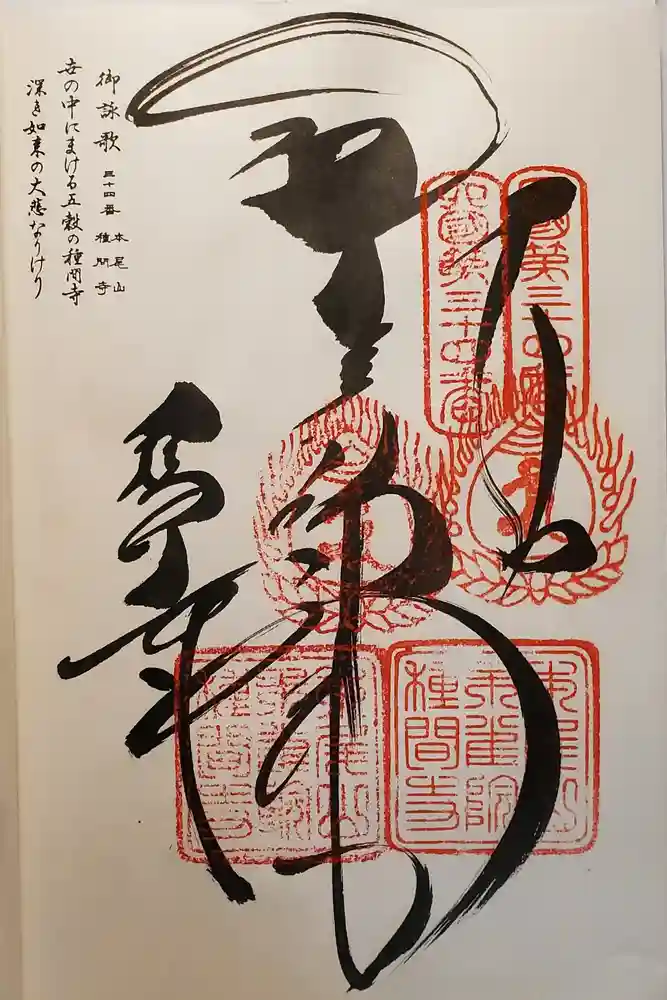 四國第三十四番
四國第三十四番
本尾山
朱雀院
種間寺
本尾山
朱雀院
種間寺
種間寺
御詠歌 三十四番 本尾山 種間寺
世の中にまける五穀の種間寺
深き如来の大悲なりけり